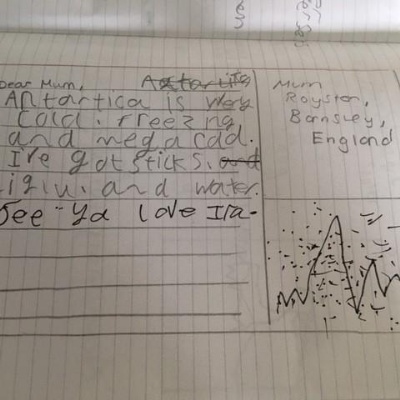 Dear Mum,
Antartica is very
cold. freezing
and mega cad.
I're got sticks.
iglu. and water.
See Ya love Ira-
Mum
Royston,
Bansley,
England